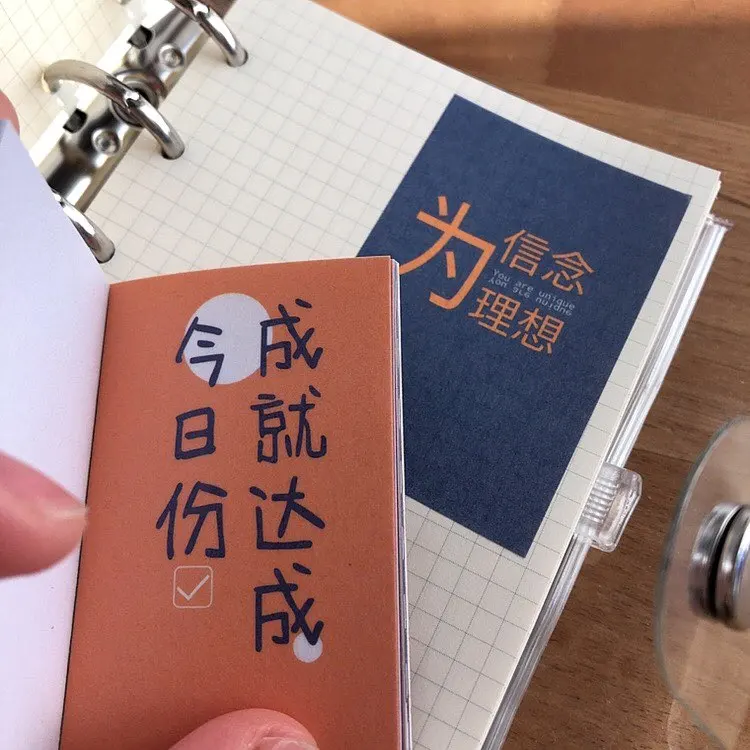 今日份
成就达成
为
信念
You are unique
You are unique
理想